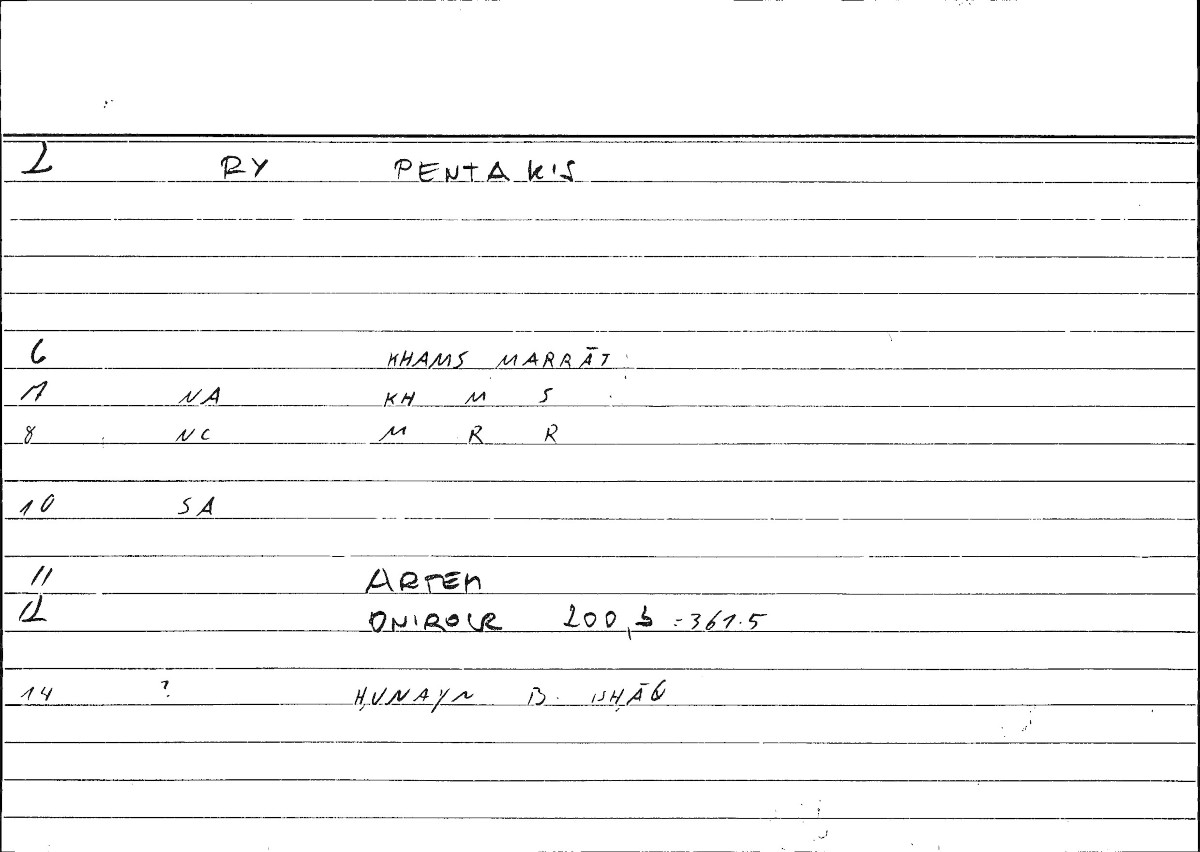 2 RY PENTAKIS
6 KHAMS MARRĀT
7 NA KH M S
8 NC M R R
10 SA
11 ARTEM
12 ONIROCR 200, = 361.5
14 ? ḤUNAYN B. ISḤĀQ